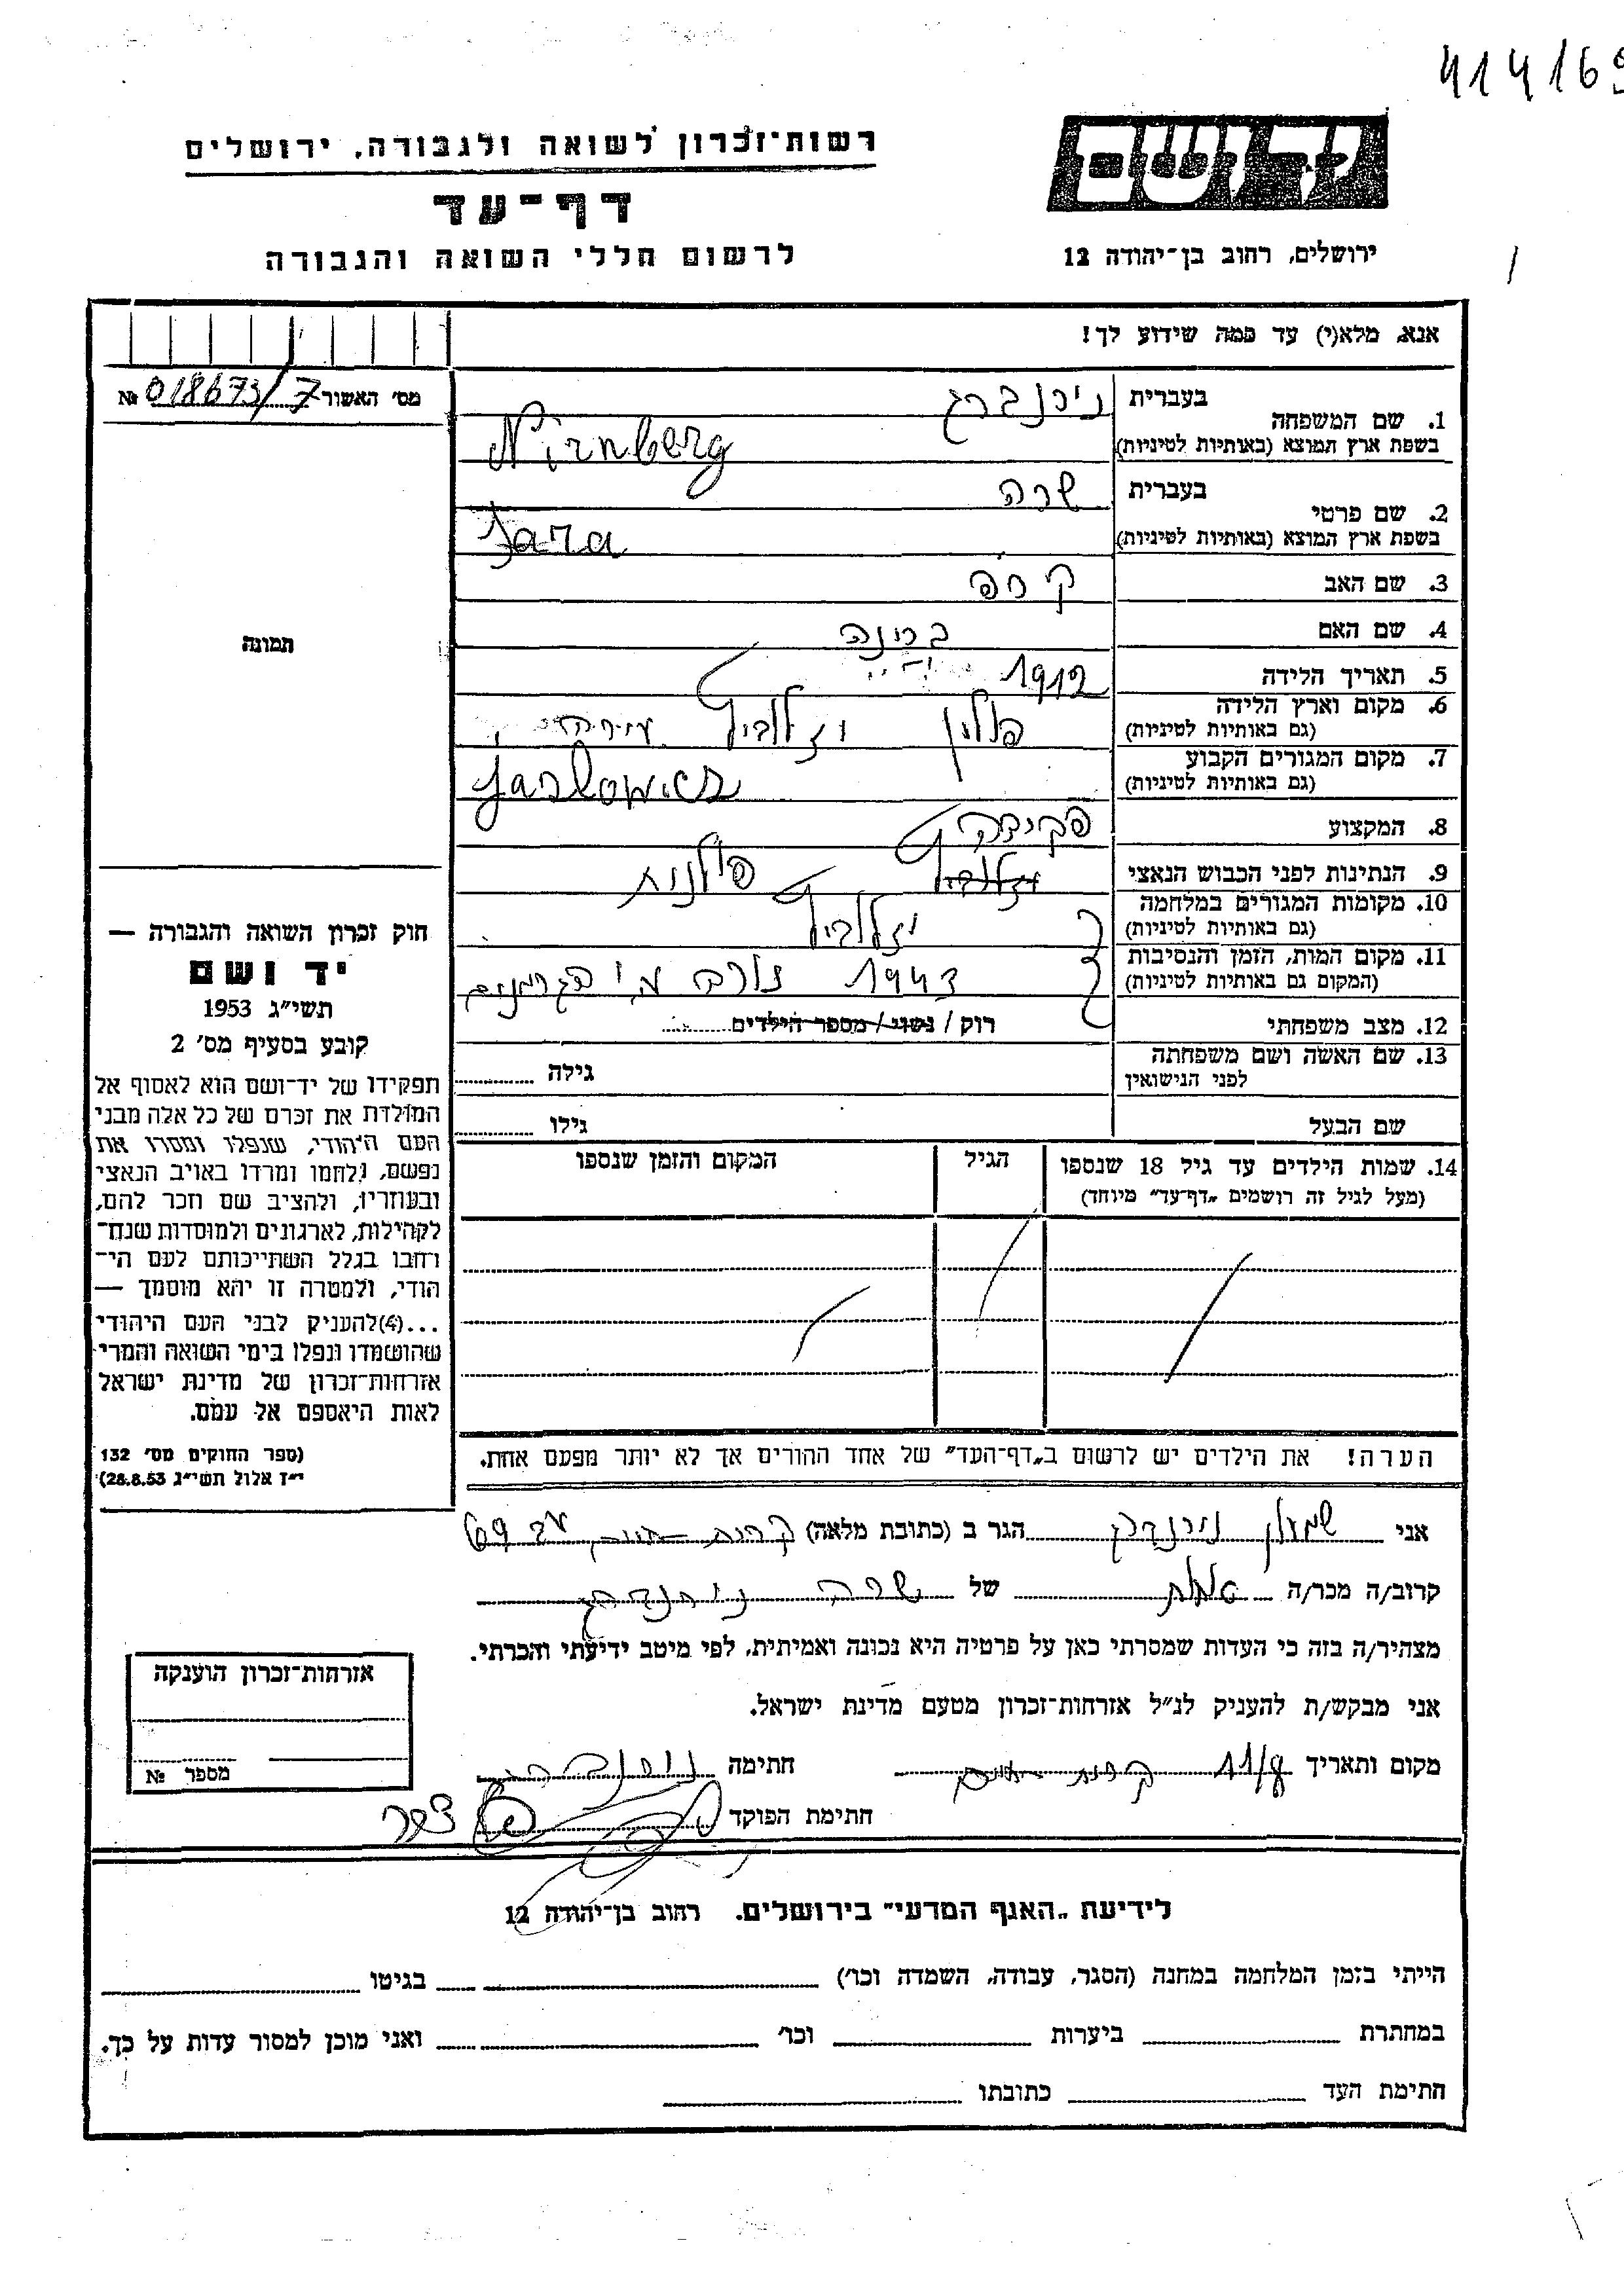 414169
רשות־זכרון לשואה ולגבורה, ירושלים
דף־עד
לרשום חללי השואה והגבורה
יד ושם
ירושלים, רחוב בן־יהודה 12
אנא, מלא(י) עד כמה שידוע לך!
מס׳ האשור 018673/7 №
1. שם המשפחה בעברית נירנברג
בשפת ארץ המוצא (באותיות לטיניות) Nirnberg
2. שם פרטי בעברית שרה
בשפת ארץ המוצא (באותיות לטיניות) Sara
3. שם האב
4. שם האם ברינה
5. תאריך הלידה 1912
6. מקום וארץ הלידה (גם באותיות לטיניות) פולין
7. מקום המגורים הקבוע (גם באותיות לטיניות)
8. המקצוע פקידה
9. הנתינות לפני הכבוש הנאצי פולנית
10. מקומות המגורים במלחמה (גם באותיות לטיניות)
11. מקום המות, הזמן והנסיבות (המקום גם באותיות לטיניות) 1943 הגרמנים
12. מצב משפחתי רוק / נשוי / מספר הילדים
13. שם האשה ושם משפחתה לפני הנישואין גילה
שם הבעל גילו
14. שמות הילדים עד גיל 18 שנספו הגיל המקום והזמן שנספו
(מעל לגיל זה רושמים „דף־עד״ מיוחד)
הערה! את הילדים יש לרשום ב„דף־העד״ של אחד ההורים אך לא יותר מפעם אחת.
תמונה
חוק זכרון השואה והגבורה —
יד ושם
תשי״ג 1953
קובע בסעיף מס׳ 2
תפקידו של יד־ושם הוא לאסוף אל
המולדת את זכרם של כל אלה מבני
העם היהודי, שנפלו ומסרו את
נפשם, נלחמו ומרדו באויב הנאצי
ובעוזריו, ולהציב שם וזכר להם,
לקהילות, לארגונים ולמוסדות שנח־
רחבו בגלל השתייכותם לעם הי־
הודי, ולמטרה זו יהא מוסמך —
...(4)להעניק לבני העם היהודי
שהושמדו ונפלו בימי השואה והמרי
אזרחות־זכרון של מדינת ישראל
לאות היאספם אל עמם.
(ספר החוקים מס׳ 132
י״ז אלול תשי״ג 28.8.53)
אני שמעון הגר ב (כתובת מלאה) קרית 69
קרוב/ה מכר/ה של שרה
מצהיר/ה בזה כי העדות שמסרתי כאן על פרטיה היא נכונה ואמיתית, לפי מיטב ידיעתי והכרתי.
אני מבקש/ת להעניק לנ״ל אזרחות־זכרון מטעם מדינת ישראל.
מקום ותאריך 11/8 קרית חתימה
חתימת הפוקד
אזרחות־זכרון הוענקה
מספר №
לידיעת „האגף המדעי״ בירושלים. רחוב בן־יהודה 12
הייתי בזמן המלחמה במחנה (הסגר, עבודה, השמדה וכו׳) בגיטו
במחתרת ביערות וכו׳ ואני מוכן למסור עדות על כך.
חתימת העד כתובתו